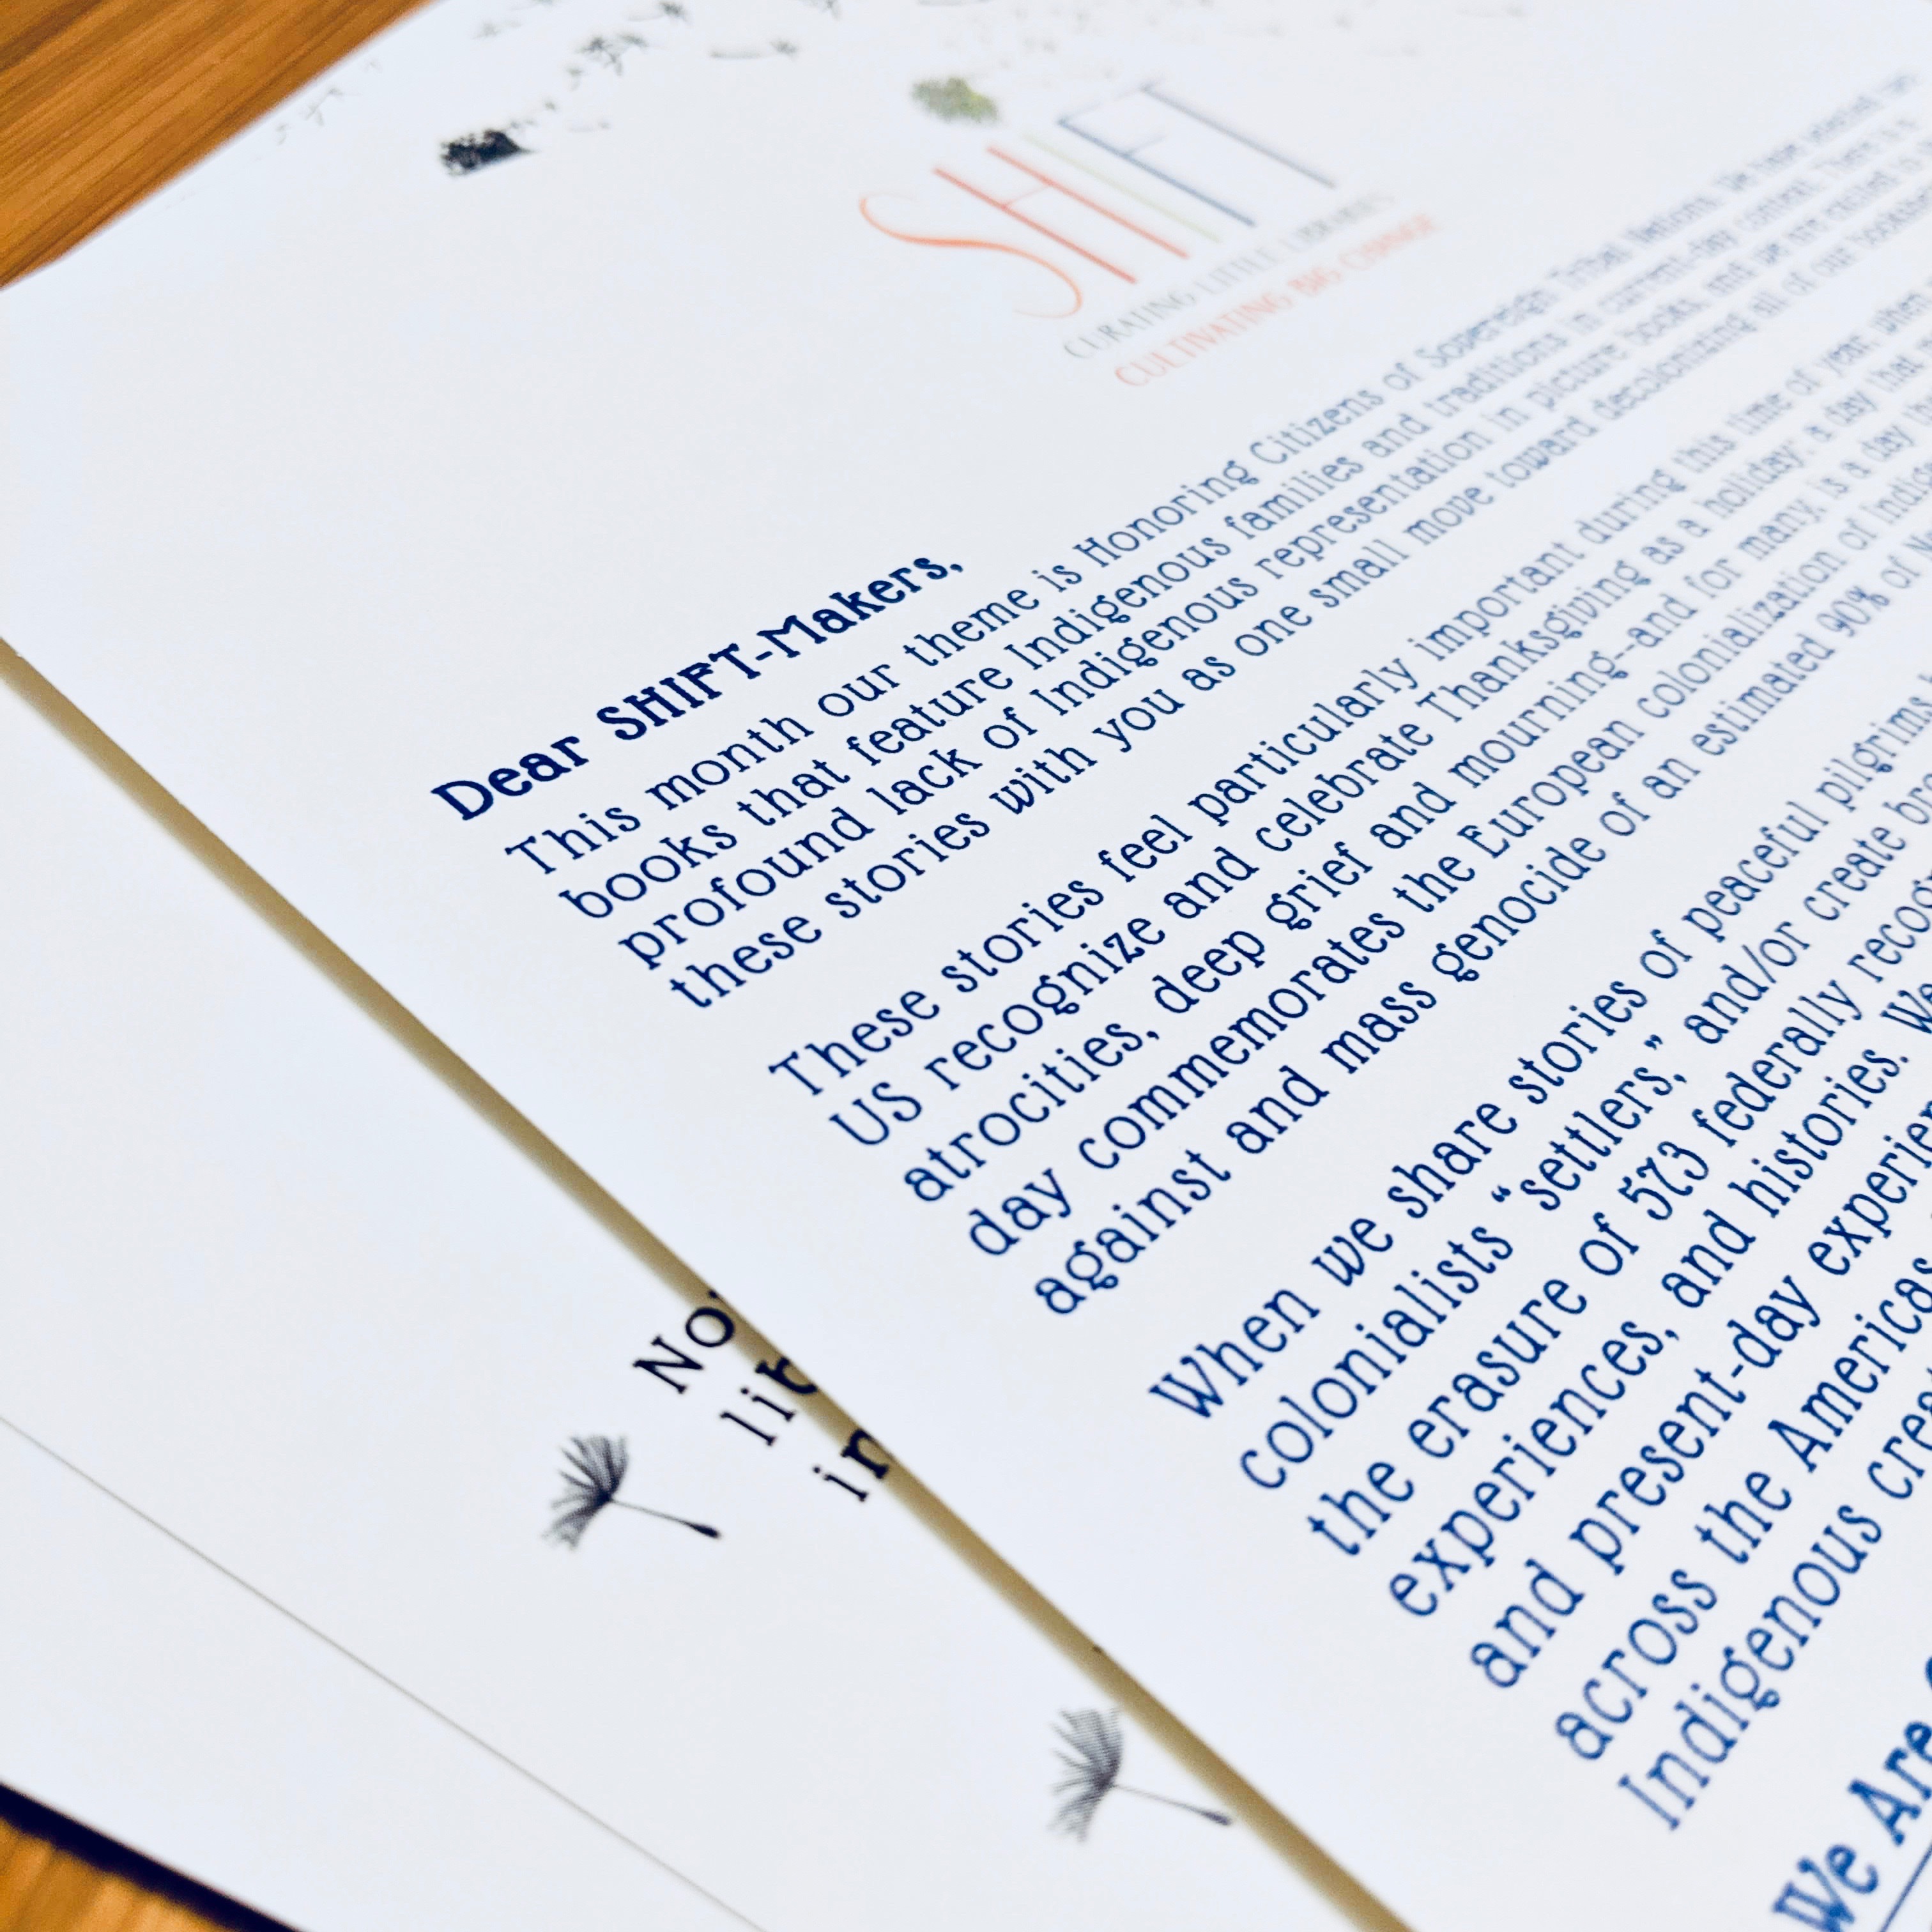 SHIFT
CURATING LITTLE LIBRARIES
CULTIVATING BIG CHANGE
Dear SHIFT-Makers,
This month our theme is Honoring Citizens of Sovereign Tribal Nations. We have selected
books that feature Indigenous families and traditions in current-day context. There is a
profound lack of Indigenous representation in picture books and we are excited to
these stories with you as one small move toward decolonizing all of our
These stories feel particularly important during this time of year when
US recognize and celebrate Thanksgiving as a holiday: a day that
atrocities, deep grief and mourning--and for many, is a day
day commemorates the European colonialization of
against and mass genocide of an estimated 90% of
When we share stories of peaceful pilgrims
colonialists "settlers," and/or create
the erasure of 573 federally
experiences, and histories. We
and present-day
across the Americas
Indigenous
We Are
No
in